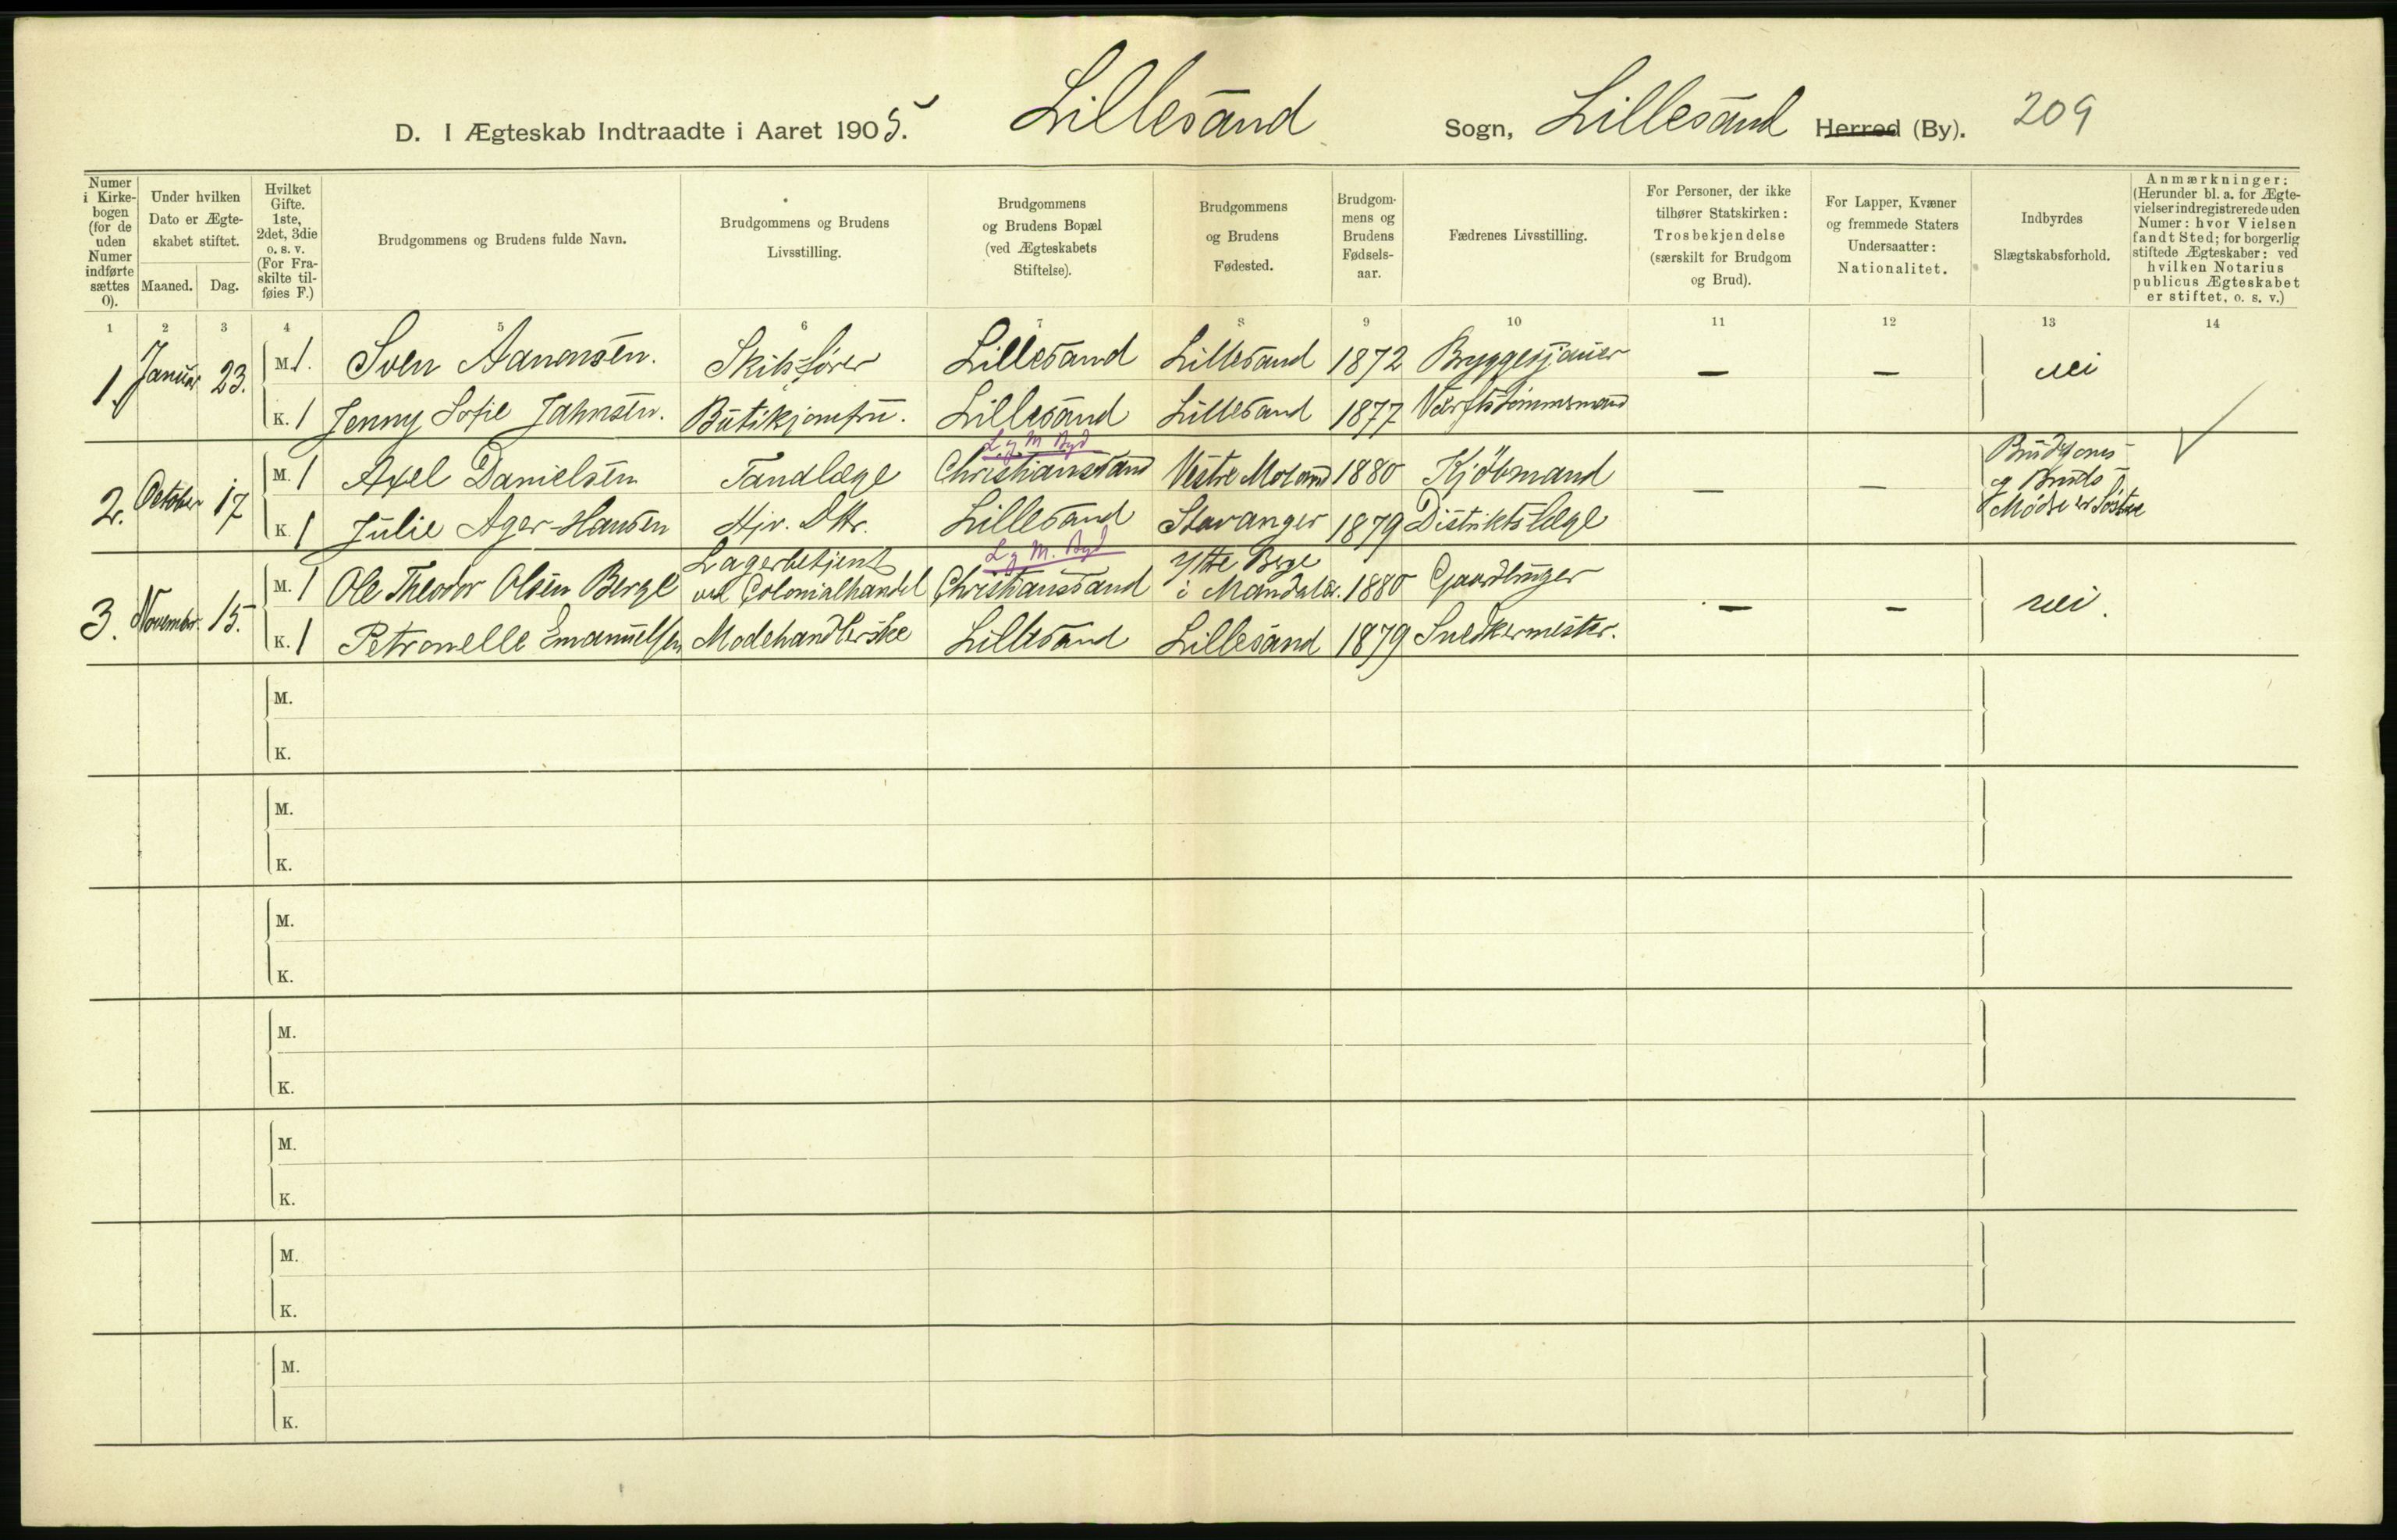 D. I Ægteskab Indtraadte i Aaret 1905. Lillesand Sogn, Lillesand Herred (By). 209
Numer i Kirkebogen (for de uden Numer indførte sættes 0).
Under hvilken Dato er Ægteskabet stiftet.
Maaned. Dag.
Hvilket Gifte. 1ste, 2det, 3die o. s. v. (For Fraskilte tilføies F.)
Brudgommens og Brudens fulde Navn.
Brudgommens og Brudens Livsstilling.
Brudgommens og Brudens Bopæl (ved Ægteskabets Stiftelse).
Brudgommens og Brudens Fødested.
Brudgommens og Brudens Fødselsaar.
Fædrenes Livsstilling.
For Personer, der ikke tilhører Statskirken: Trosbekjendelse (særskilt for Brudgom og Brud).
For Lapper, Kvæner og fremmede Staters Undersaatter: Nationalitet.
Indbyrdes Slægtskabsforhold.
Anmærkninger: (Herunder bl. a. for Ægtevielser indregistrerede uden Numer: hvor Vielsen fandt Sted; for borgerlig stiftede Ægteskaber: ved hvilken Notarius publicus Ægteskabet er stiftet, o. s. v.)
1 2 3 4 5 6 7 8 9 10 11 12 13 14
1. Januar 23. M. 1. Sven Aanonsen. Skibsfører Lillesand Lillesand 1872 Bryggesjauer — — nei
K. 1 Jenny Sofie Jahnsen. Butikjomfru. Lillesand Lillesand 1877 Værftstømmermand
L. g. M. Byd
2. October 17 M. 1 Axel Danielsen Tandlæge Christianssand Vestre Moland 1880 Kjøbmand — — Brudgoms og Bruds Mødre er Søstre
K. 1 Julie Ager-Hansen Hjv. Dtr. Lillesand Stavanger 1879 Distriktslæge
L. g. M. Byd
3. November 15. M. 1 Ole Theodor Olsen Berge Lagerbetjent ved Colonialhandel Christianssand Ytte Berge i Mandal 1880 Gaardbruger — — nei.
K. 1 Petronelle Emanuelsen Modehandlerske Lillesand Lillesand 1879 Snedkermester.
M.
K.
M.
K.
M.
K.
M.
K.
M.
K.
M.
K.
M.
K.